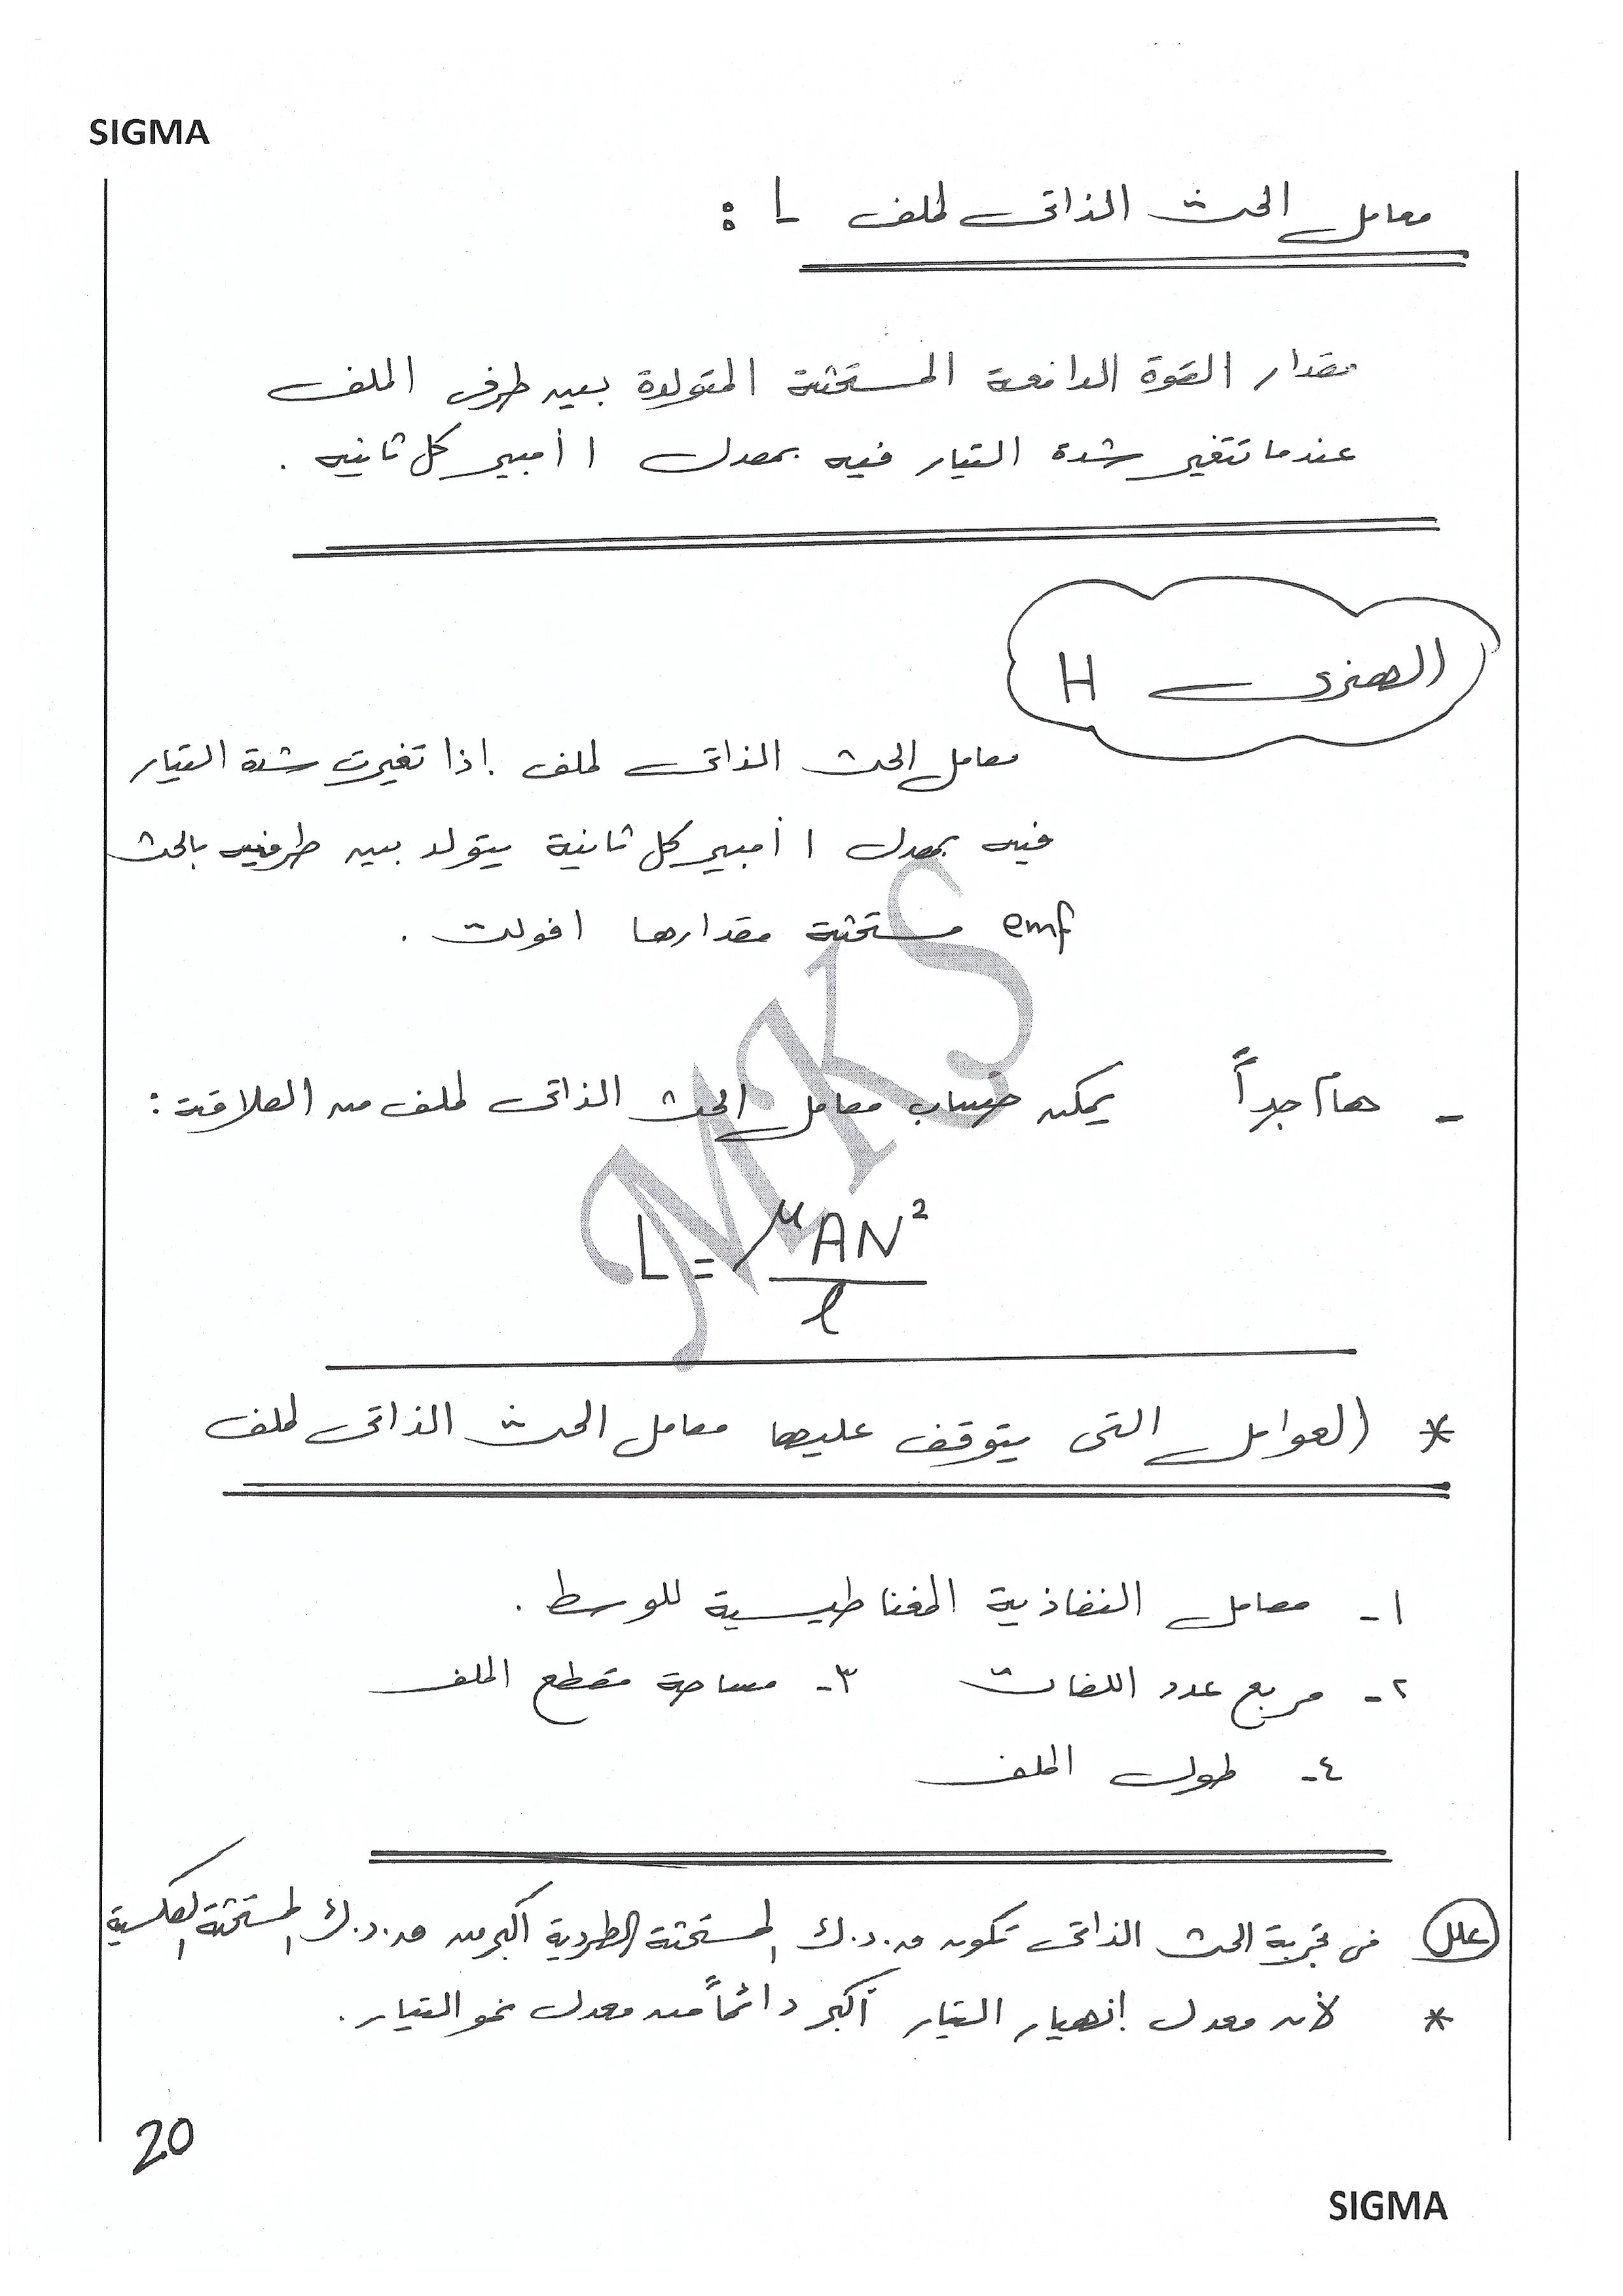 SIGMA
معامل الحث الذاتى لملف L :
مقدار القوة الدافعة المستحثة المتولدة بين طرفى الملف
عندما تتغير شدة التيار فيه بمعدل ١ أمبير كل ثانيه .
الهنرى H
معامل الحث الذاتى لملف إذا تغيرت شدة التيار
فيه بمعدل ١ أمبير كل ثانية يتولد بين طرفيه بالحث
emf مستحثة مقدارها ١ فولت .
- هام جداً يمكن حساب معامل الحث الذاتى لملف من العلاقة :
L = μAN² / ℓ
MKS
* العوامل التى يتوقف عليها معامل الحث الذاتى لملف
١- معامل النفاذية المغناطيسية للوسط .
٢- مربع عدد اللفات ٣- مساحة مقطع الملف
٤- طول الملف
علل فى تجربة الحث الذاتى تكون ق.د.ك المستحثة الطردية أكبر من ق.د.ك المستحثة العكسية
* لأن معدل إنهيار التيار أكبر دائماً من معدل نمو التيار .
20
SIGMA